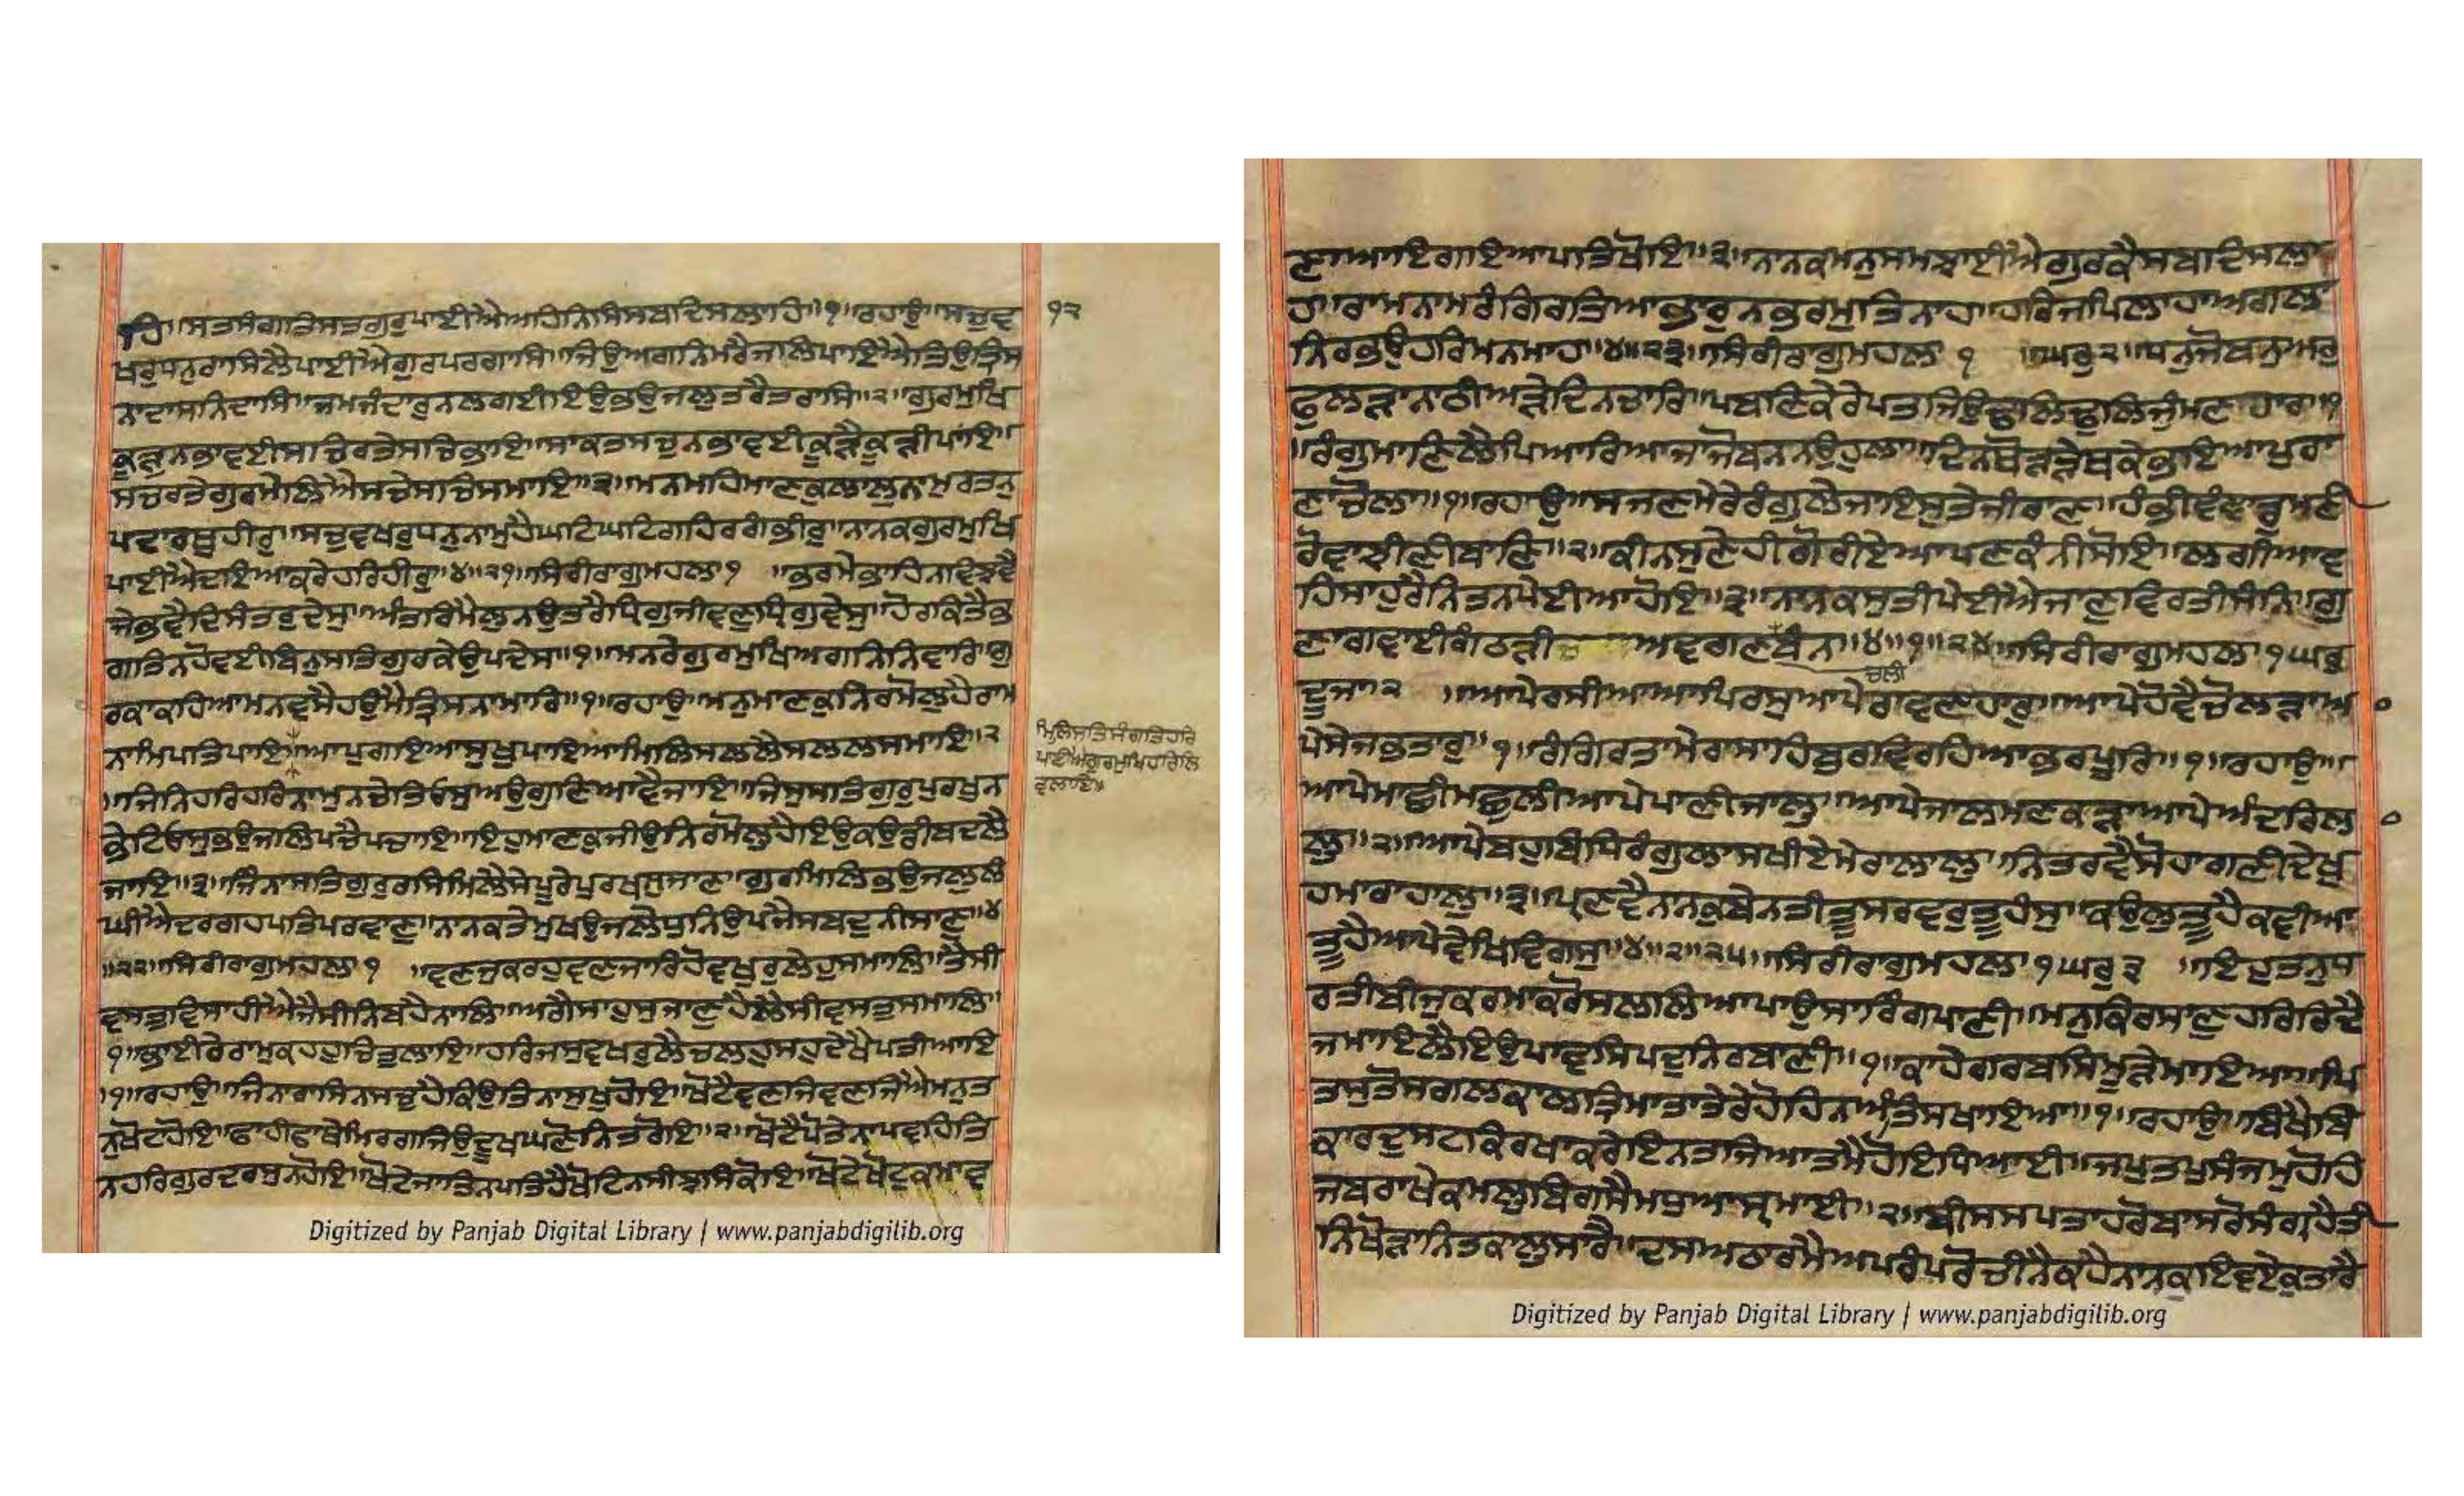 ਹਿ॥ਸਤਸੰਗਤਿਸਤਗੁਰੁਪਾਈਐਅਹਿਨਿਸਿਸਬਦਿਸਲਾਹਿ॥੧॥ਰਹਾਉ॥ਸਚੁਵ
੧੨
ਖਰੁਧਨੁਰਾਸਿਲੈਪਾਈਐਗੁਰਪਰਗਾਸਿ॥ਜਿਉਅਗਨਿਮਰੈਜਲਿਪਾਇਐਤਿਉਤ੍ਰਿਸ
ਨਾਦਾਸਨਿਦਾਸਿ॥ਜਮਜੰਦਾਰੁਨਲਗਈਇਉਭਉਜਲੁਤਰੈਤਰਾਸਿ॥੨॥ਗੁਰਮੁਖਿ
ਕੂੜੁਨਭਾਵਈਸਚਿਰਤੇਸਚਿਭਾਇ॥ਸਾਕਤਸਚੁਨਭਾਵਈਕੂੜੈਕੂੜੀਪਾਇ॥
ਸਚਰਤੇਗੁਰਮੇਲਿਐਸਚੇਸਚਿਸਮਾਇ॥੩॥ਮਨਮਹਿਮਾਣਕੁਲਾਲੁਨਾਮੁਰਤਨੁ
ਪਦਾਰਥੁਹੀਰੁ॥ਸਚੁਵਖਰੁਧਨੁਨਾਮੁਹੈਘਟਿਘਟਿਗਹਿਰਗੰਭੀਰੁ॥ਨਾਨਕਗੁਰਮੁਖਿ
ਪਾਈਐਦਇਆਕਰੇਹਰਿਹੀਰੁ॥੪॥੨੧॥ਸਿਰੀਰਾਗੁਮਹਲਾ੧ ॥ਭਰਮੇਭਾਹਿਨਵਿਝਵੈ
ਜੇਭਵੈਦਿਸੰਤਰੁਦੇਸੁ॥ਅੰਤਰਿਮੈਲੁਨਉਤਰੈਧ੍ਰਿਗੁਜੀਵਣੁਧ੍ਰਿਗੁਵੇਸੁ॥ਹੋਰਕਿਤੈਭ
ਗਤਿਨਹੋਵਈਬਿਨੁਸਤਿਗੁਰਕੇਉਪਦੇਸ॥੧॥ਮਨਰੇਗੁਰਮੁਖਿਅਗਨਿਨਿਵਾਰਿ॥ਗੁ
ਰਕਾਕਹਿਆਮਨਵਸੈਹਉਮੈਤ੍ਰਿਸਨਾਮਾਰਿ॥੧॥ਰਹਾਉ॥ਮਨੁਮਾਣਕੁਨਿਰਮੋਲੁਹੈਰਾਮ
ਨਾਮਿਪਤਿਪਾਇ॥ਆਪੁਗਇਆਸੁਖੁਪਾਇਆਮਿਲਿਸਲਲੈਸਲਲਸਮਾਇ॥੨
ਮਿਲਿਸਤਿਸੰਗਤਿਹਰਿ
ਪਾਈਐਗੁਰਮੁਖਿਹਰਿਲਿ
ਵਲਾਇ॥
॥ਜਿਨਿਹਰਿਹਰਿਨਾਮੁਨਚੇਤਿਓਸੁਅਉਗੁਣਿਆਵੈਜਾਇ॥ਜਿਸੁਸਤਿਗੁਰੁਪੁਰਖੁਨ
ਭੇਟਿਓਸੁਭਉਜਲਿਪਚੈਪਚਾਇ॥ਇਹੁਮਾਣਕੁਜੀਉਨਿਰਮੋਲੁਹੈਇਉਕਉਡੀਬਦਲੈ
ਜਾਇ॥੩॥ਜਿੰਨਾਸਤਿਗੁਰੁਰਸਿਮਿਲੈਸੇਪੂਰੇਪੁਰਖਸੁਜਾਣ॥ਗੁਰਮਿਲਿਭਉਜਲੁਲੰ
ਘੀਐਦਰਗਹਪਤਿਪਰਵਾਣੁ॥ਨਾਨਕਤੇਮੁਖਉਜਲੇਧੁਨਿਉਪਜੈਸਬਦੁਨੀਸਾਣੁ॥੪
॥੨੨॥ਸਿਰੀਰਾਗੁਮਹਲਾ੧ ॥ਵਣਜੁਕਰਹੁਵਣਜਾਰਿਹੋਵਖਰੁਲੇਹੁਸਮਾਲਿ॥ਤੈਸੀ
ਵਸਤੁਵਿਸਾਹੀਐਜੈਸੀਨਿਬਹੈਨਾਲਿ॥ਅਗੈਸਾਹੁਸੁਜਾਣੁਹੈਲੈਸੀਵਸਤੁਸਮਾਲਿ॥
੧॥ਭਾਈਰੇਰਾਮੁਕਹਹੁਚਿਤੁਲਾਇ॥ਹਰਿਜਸੁਵਖਰੁਲੈਚਲਹੁਸਹੁਦੇਖੈਪਤੀਆਇ
॥੧॥ਰਹਾਉ॥ਜਿਨਾਰਾਸਿਨਸਚੁਹੈਕਿਉਤਿਨਾਸੁਖੁਹੋਇ॥ਖੋਟੈਵਣਜਿਵਣੰਜਿਐਮਨੁਤ
ਨੁਖੋਟਹੋਇ॥ਫਾਹੀਫਾਥੇਮਿਰਗਜਿਉਦੂਖੁਘਣੋਨਿਤਰੋਇ॥੨॥ਖੋਟੈਪੋਤੇਨਾਪਵਹਿਤਿ
ਨਹਰਿਗੁਰਦਰਸੁਨਹੋਇ॥ਖੋਟੇਜਾਤਿਨਪਤਿਹੈਖੋਟਿਨਸੀਝਸਿਕੋਇ॥ਖੋਟੇਖੋਟੁਕਮਾਵ
ਣਾਆਇਗਇਆਪਤਿਖੋਇ॥੩॥ਨਾਨਕਮਨੁਸਮਝਾਈਐਗੁਰਕੈਸਬਦਿਸਲਾ
ਹ॥ਰਾਮਨਾਮਰੰਗਿਰਤਿਆਭਾਰੁਨਭਰਮੁਤਿਨਾਹ॥ਹਰਿਜਪਿਲਾਹਾਅਗਲਾ
ਨਿਰਭਉਹਰਿਮਨਮਾਹ॥੪॥੨੩॥ਸਿਰੀਰਾਗੁਮਹਲਾ ੧ ॥ਘਰੁ੨॥ਧਨੁਜੋਬਨੁਅਰੁ
ਫੁਲੜਾਨਾਠੀਅੜੇਦਿਨਚਾਰਿ॥ਪਬਣਿਕੇਰੇਪਤਜਿਉਢਲਿਢੁਲਿਜੁੰਮਣਹਾਰ॥੧
॥ਰੰਗੁਮਾਣਿਲੈਪਿਆਰਿਆਜਾਜੋਬਨੁਨਉਹੁਲਾ॥ਦਿਨਥੋੜੜੇਥਕੇਭਇਆਪੁਰਾ
ਣਾਚੋਲਾ॥੧॥ਰਹਾਉ॥ਸਜਣਮੇਰੇਰੰਗੁਲੇਜਾਇਸੁਤੇਜੀਰਾਣ॥ਹੰਭੀਵੰਞਾਡੁਮਣੀ
ਰੋਵਾਝੀਣੀਬਾਣਿ॥੨॥ਕੀਨਸੁਣੇਹੀਗੋਰੀਏਆਪਣਕੰਨੀਸੋਇ॥ਲਗੀਆਵ
ਹਿਸਾਹੁਰੈਨਿਤਨਪੇਈਆਹੋਇ॥੩॥ਨਾਨਕਸੁਤੀਪੇਈਐਜਾਣੁਵਿਰਤੀਸੰਨਿ॥ਗੁ
ਣਾਗਵਾਈਗੰਠੜੀ ਅਵਗਣਬੰਨਿ॥੪॥੧॥੨੪॥ਸਿਰੀਰਾਗੁਮਹਲਾ੧ਘਰੁ
ਚਲੀ
ਦੂਜਾ੨ ॥ਆਪੇਰਸੀਆਆਪਿਰਸੁਆਪੇਰਾਵਣਹਾਰੁ॥ਆਪੇਹੋਵੈਚੋਲੜਾਆ
ਪੇਸੇਜਭਤਾਰੁ॥੧॥ਰੰਗਿਰਤਾਮੇਰਾਸਾਹਿਬੁਰਵਿਰਹਿਆਭਰਪੂਰਿ॥੧॥ਰਹਾਉ॥
ਆਪੇਮਾਛੀਮਛੁਲੀਆਪੇਪਾਣੀਜਾਲੁ॥ਆਪੇਜਾਲਮਣਕੜਾਆਪੇਅੰਦਰਿਲਾ
ਲੁ॥੨॥ਆਪੇਬਹੁਬਿਧਿਰੰਗੁਲਾਸਖੀਏਮੇਰਾਲਾਲੁ॥ਨਿਤਰਵੈਸੋਹਾਗਣੀਦੇਖੁ
ਹਮਾਰਾਹਾਲੁ॥੩॥ਪ੍ਰਣਵੈਨਾਨਕੁਬੇਨਤੀਤੂਸਰਵਰੁਤੂਹੰਸੁ॥ਕਉਲੁਤੂਹੈਕਵੀਆ
ਤੂਹੈਆਪੇਵੇਖਿਵਿਗਸੁ॥੪॥੨॥੨੫॥ਸਿਰੀਰਾਗੁਮਹਲਾ੧ਘਰੁ੩ ॥ਇਹੁਤਨੁਧ
ਰਤੀਬੀਜੁਕਰਮਾਕਰੋਸਲਲਿਆਪਾਉਸਾਰਿੰਗਪਾਣੀ॥ਮਨੁਕਿਰਸਾਣੁਹਰਿਰਿਦੈ
ਜਮਾਇਲੈਇਉਪਾਵਸਿਪਦੁਨਿਰਬਾਣੀ॥੧॥ਕਾਹੇਗਰਬਸਿਮੂੜੇਮਾਇਆ॥ਪਿ
ਤਸੁਤੋਸਗਲਕਾਲਤ੍ਰਿਮਾਤਾਤੇਰੇਹੋਹਿਨਅੰਤਿਸਖਾਇਆ॥੧॥ਰਹਾਉ॥ਬਿਖੈਬਿ
ਕਾਰਦੁਸਟਕਿਰਖਾਕਰੇਇਨਤਜਿਆਤਮੈਹੋਇਧਿਆਈ॥ਜਪੁਤਪੁਸੰਜਮੁਹੋਹਿ
ਜਬਰਾਖੇਕਮਲੁਬਿਗਸੈਮਧੁਆਸ੍ਰਮਾਈ॥੨॥ਬੀਸਸਪਤਾਹਰੋਬਾਸਰੋਸੰਗ੍ਰਹੈਤੀ
ਨਿਖੋੜਾਨਿਤਕਾਲੁਸਾਰੈ॥ਦਸਅਠਾਰਮੈਅਪਰੰਪਰੋਚੀਨੈਕਹੈਨਾਨਕੁਇਵਏਕੁਤਾਰੈ